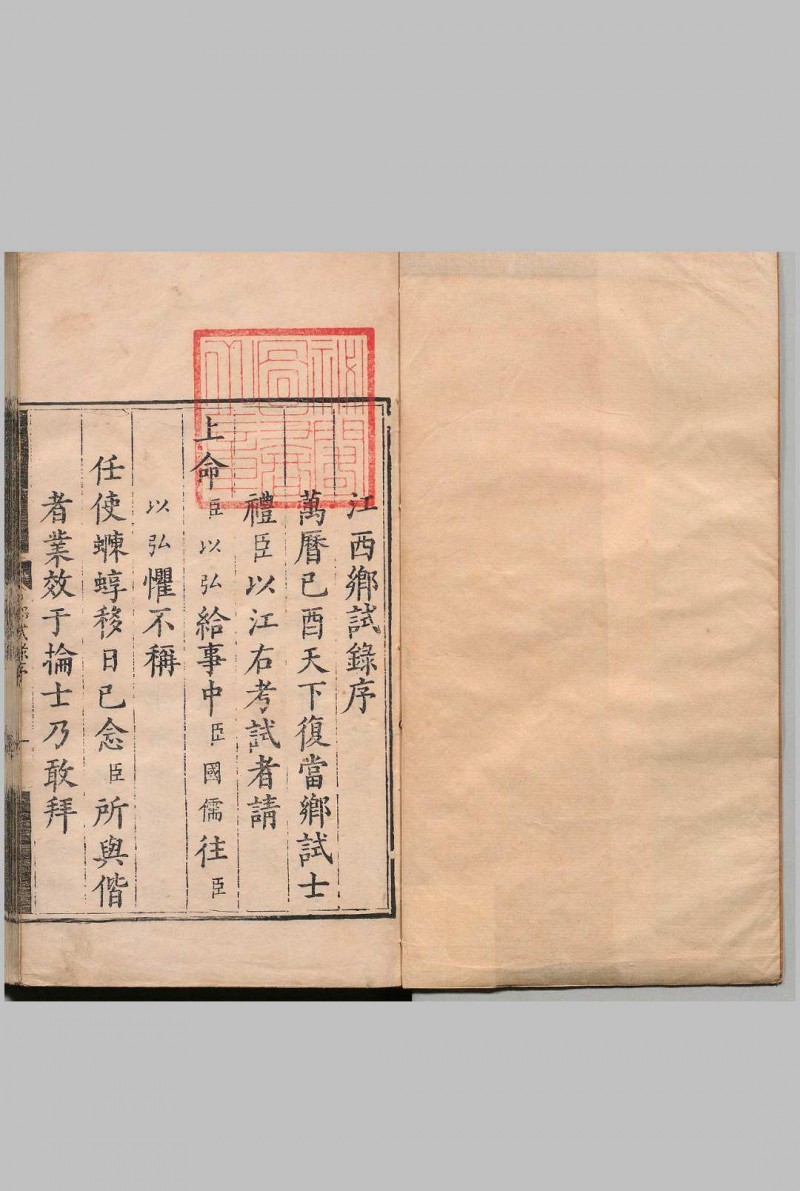 江西鄉試錄序
萬曆己酉天下復當鄉試士
禮臣以江右考試者請
上命臣以弘給事中臣國儒往臣
以弘懼不稱
任使蝀蜳移日已念臣所與偕
者業效于掄士乃敢拜